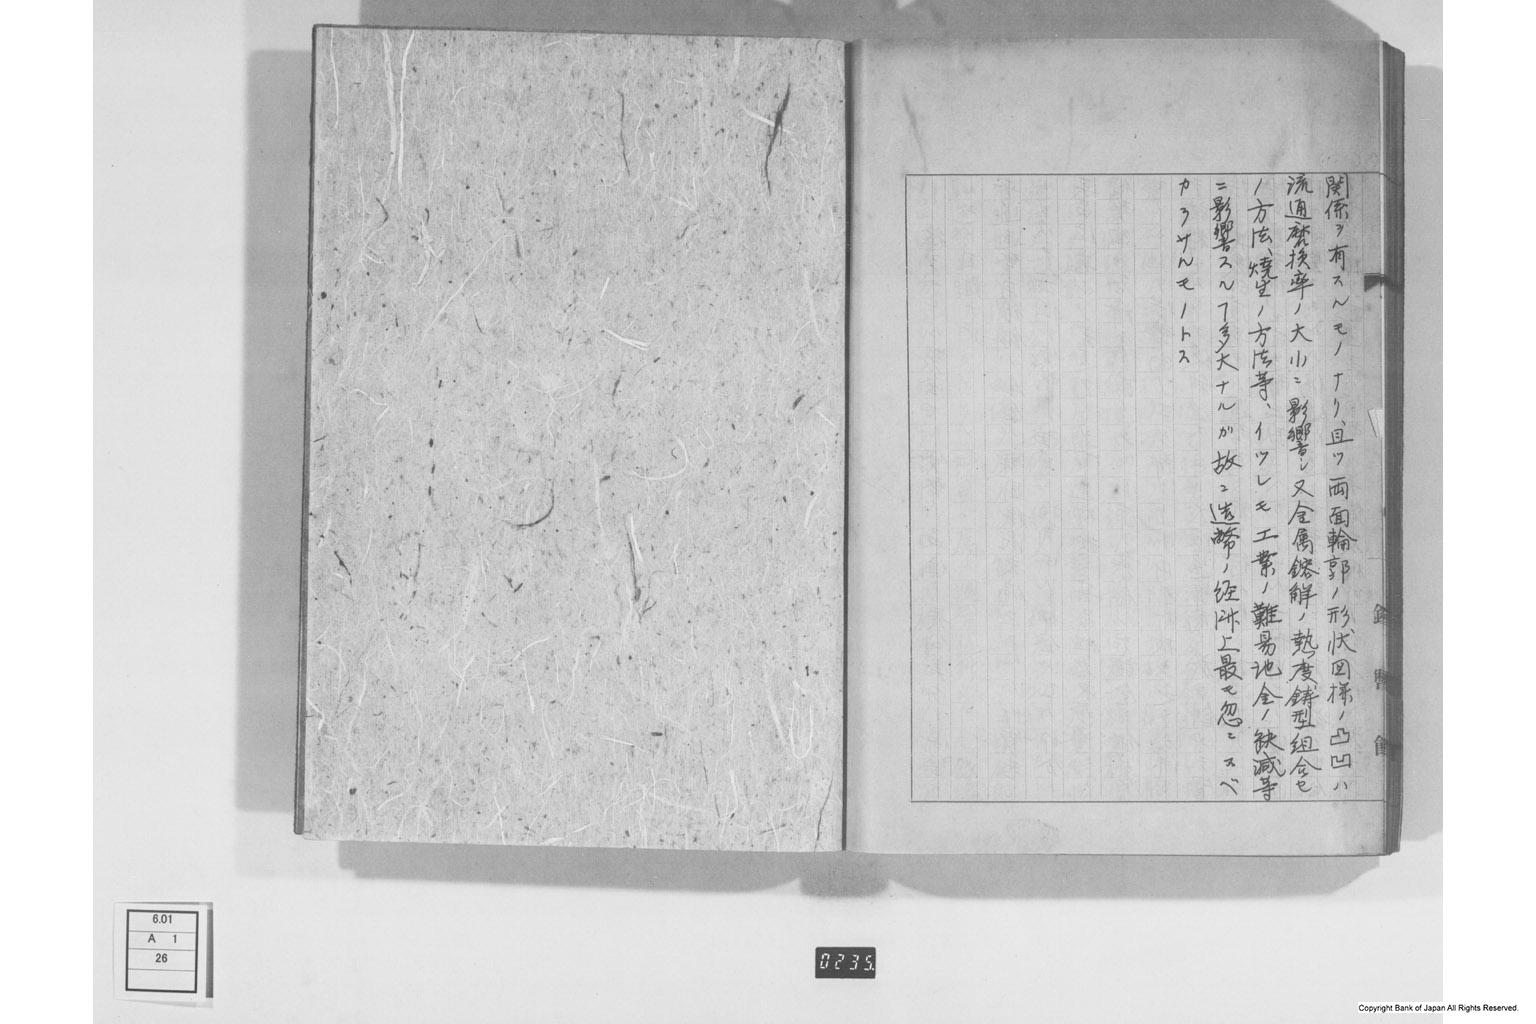 関係ヲ有スルモノナリ、且ツ両面輪郭ノ形状図様ノ凸凹ハ
流通磨損率ノ大小ニ影響シ又金属鎔解ノ熱度鋳型組合セ
ノ方法、焼生ノ方法等、イツレモ工業ノ難易地金ノ欠減等
ニ影響スルヿ多大ナルガ故ニ造幣ノ経済上最モ忽ニスベ
カラサルモノトス
6.01
A 1
26
0235
Copyright Bank of Japan All Rights Reserved.